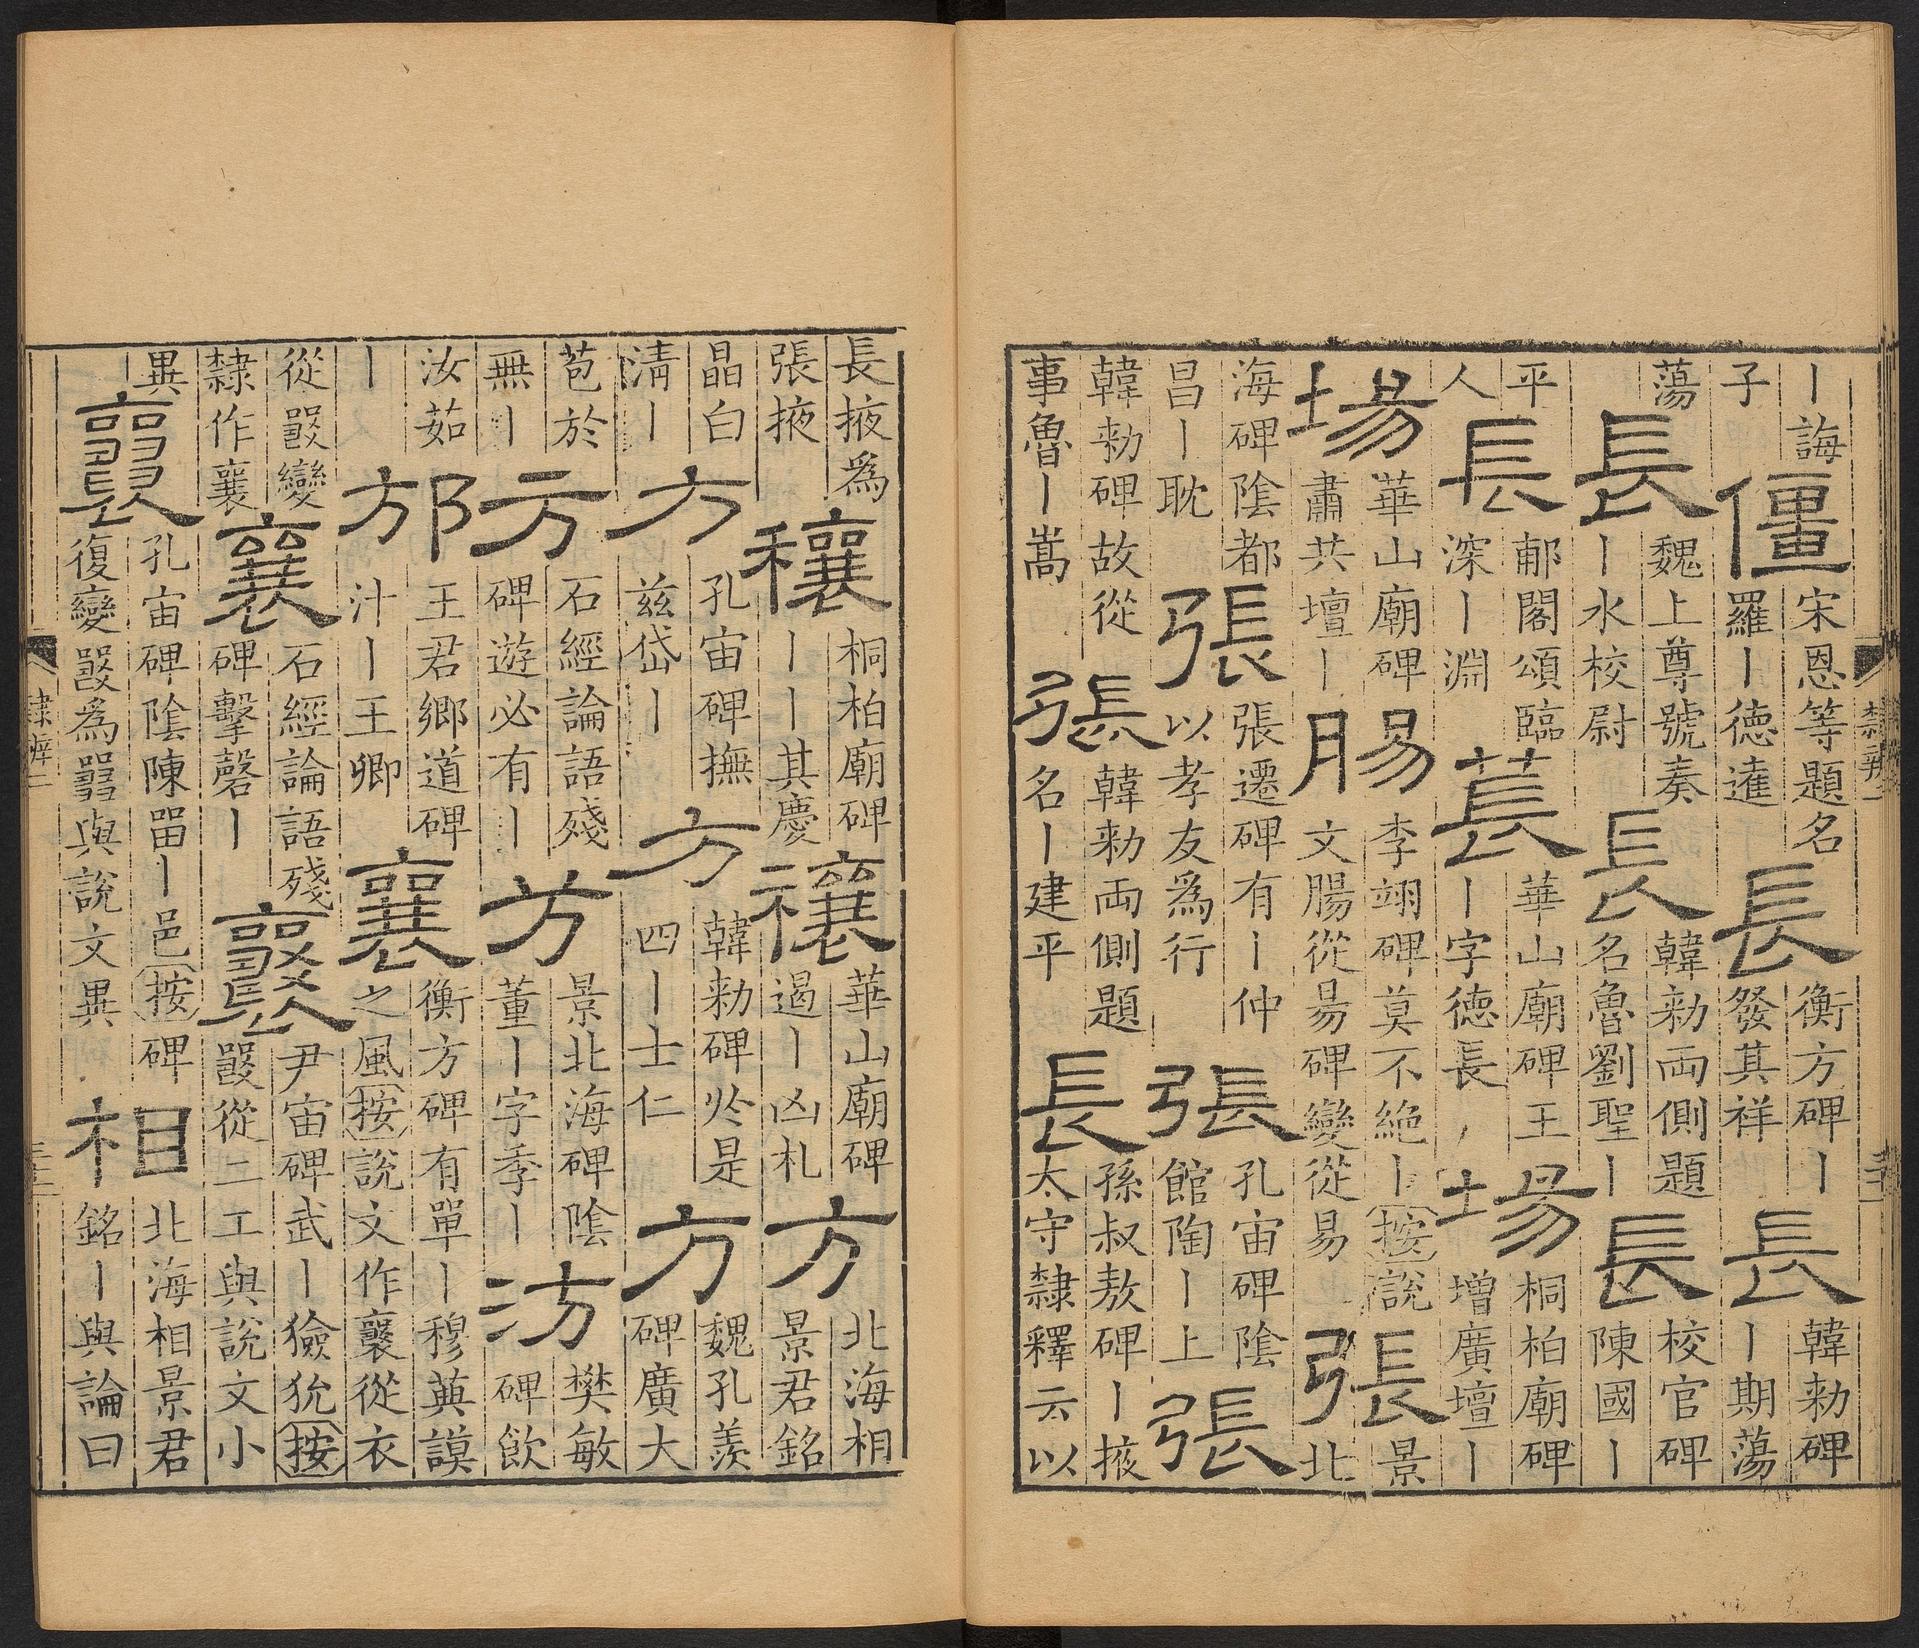 丨誨子僵宋恩等題名羅丨德達長衡方碑丨發其祥長韓勑碑丨期蕩
蕩長魏上尊號奏丨水校尉長韓勑兩側題名魯劉聖丨長校官碑陳國丨
平人長郙閣頌臨深丨淵萇華山廟碑王丨字德長場桐柏廟碑增廣壇丨
場華山廟碑肅共壇丨腸李翊碑莫不絶丨按說文腸從昜碑變從易張景北
海碑陰都昌丨耽張張遷碑有丨仲以孝友爲行張孔宙碑陰館陶丨上張
韓勑碑故從事魯丨嵩張韓勑兩側題名丨建平長孫叔敖碑丨掖太守隸釋云以
長掖爲張掖穰桐柏廟碑丨丨其慶禳華山廟碑遏丨凶札方北海相景君銘
晶白淸丨方孔宙碑撫兹岱丨方韓勑碑於是四丨士仁方魏孔羨碑廣大
苞於無丨方石經論語殘碑遊必有丨芳景北海碑陰董丨字季丨汸樊敏碑飮
汝茹丨邡王君鄉道碑汁丨王卿襄衡方碑有單丨穆英謨之風按說文作襄從衣
從㗊變隸作襄襄石經論語殘碑擊磬丨襄尹宙碑武丨獫狁按從二工與說文小
異襄孔宙碑陰陳留丨邑按碑復變爲與說文異相北海相景君銘丨與論曰
隸辨二